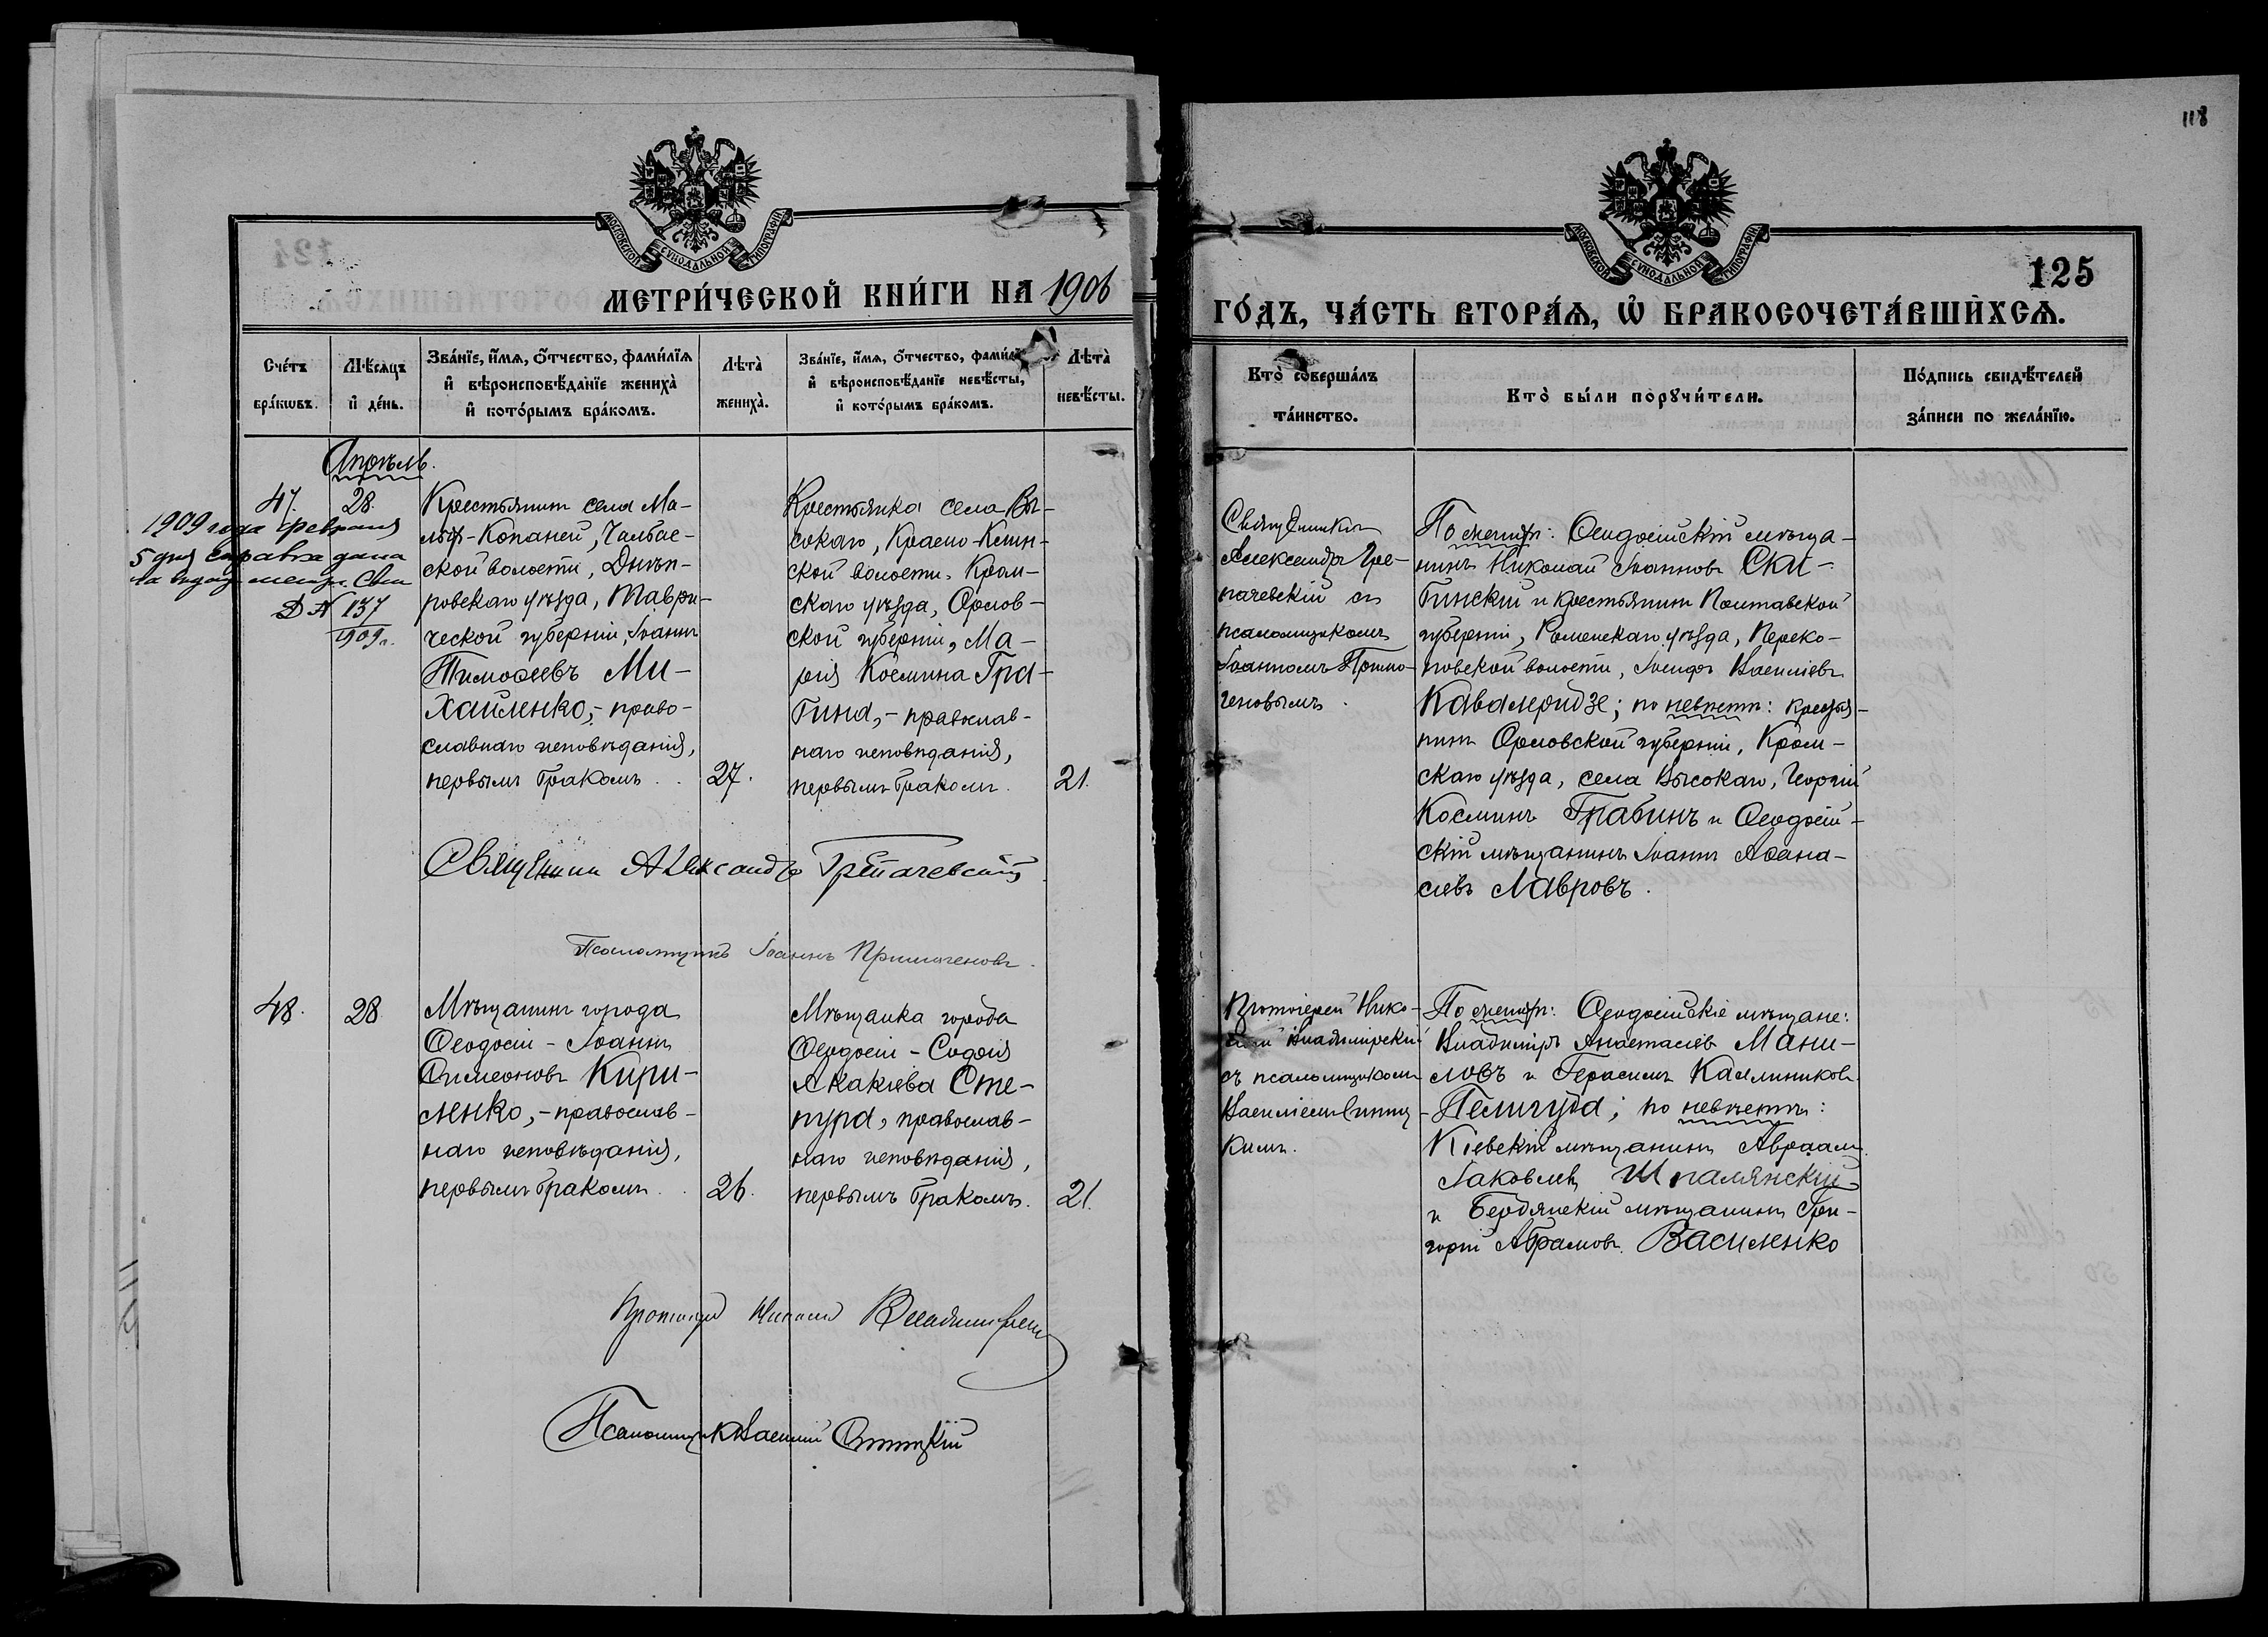 118
МОСКОВСКОЙ СУНОДАЛЬНОЙ ТИПОГРАФІИ
МОСКОВСКОЙ СУНОДАЛЬНОЙ ТИПОГРАФІИ
125
МЕТРИ́ЧЕСКОЙ КНИ́ГИ НА 1906
ГО́ДЪ, ЧА́СТЬ ВТОРА́Ѧ, Ѽ БРАКОСОЧЕТА́ВШИХСѦ.
Сче́тъ бра́кωвъ.
Мѣ́сѧцъ и҆ де́нь.
Зва́нїе, и҆́мѧ, ѻ҆́тчество, фами́лїѧ
и҆ вѣроисповѣ́данїе жениха̀
и҆ кото́рымъ бра́комъ.
Лѣта̀ жениха̀.
Зва́нїе, и҆́мѧ, ѻ҆́тчество, фами́лїѧ
и҆ вѣроисповѣ́данїе невѣ́сты,
и҆ кото́рымъ бра́комъ.
Лѣта̀ невѣ́сты.
Кто̀ соверша́лъ
та́инство.
Кто̀ бы́ли порꙋчи́тели.
По́дпись свидѣ́телей
за́писи по жела́нїю.
Апрѣль.
47.
28.
1909 года февраля
5 дня справка дана
№ 137
1909 г.
Крестьянинъ села Ма-
лыхъ-Копаней, Чалбас-
ской волости, Днѣп-
ровскаго уѣзда, Таври-
ческой губерніи, Іоаннъ
Тимоѳеевъ Ми-
хайленко,- право-
славнаго исповѣданія,
первымъ бракомъ.
27.
Крестьянка села Вы-
сокаго, Красно-Клин-
ской волости, Кром-
скаго уѣзда, Орлов-
ской губерніи, Ма-
рія Космина Гра-
бина,- православ-
наго исповѣданія,
первымъ бракомъ.
21.
Священникъ
Александръ Гре-
пачевскій съ
псаломщикомъ
Іоанномъ Прима-
ченовымъ.
По женихѣ: Ѳеодосійскій мѣща-
нинъ Николай Іоанновъ Ски-
бинскій и крестьянинъ Полтавской
губерніи, Роменскаго уѣзда, Переко-
повской волости, Іосифъ Васильевъ
Кавалеридзе; по невѣстѣ: крестья-
нинъ Орловской губерніи, Кром-
скаго уѣзда, села Высокаго, Георгій
Косминъ Грабинъ и Ѳеодосій-
скій мѣщанинъ Іоаннъ Аѳана-
сіевъ Лавровъ.
Священникъ Александръ Грепачевскій
Псаломщикъ Іоаннъ Примаченовъ.
48.
28.
Мѣщанинъ города
Ѳеодосіи - Іоаннъ
Симеоновъ Кири-
ленко,- православ-
наго исповѣданія,
первымъ бракомъ.
26.
Мѣщанка города
Ѳеодосіи - Софія
Акакіева Сте-
пура, православ-
наго исповѣданія,
первымъ бракомъ.
21.
Протоіерей Нико-
лай Владимірскій
съ псаломщикомъ
Василіемъ
По женихѣ: Ѳеодосійскіе мѣщане:
Владиміръ Анастасіевъ Мани-
ловъ и Герасимъ Каллиниковъ
Пелигуда; по невѣстѣ:
Кіевскій мѣщанинъ Авраамъ
Іаковлевъ Шпалянскій
и Бердянскій мѣщанинъ Гри-
горій Абрамовъ Василенко
Протоіерей Николай Владимірскій
Псаломщикъ Василій